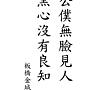 公僕無臉見人
黑心沒有良知
板橋金城